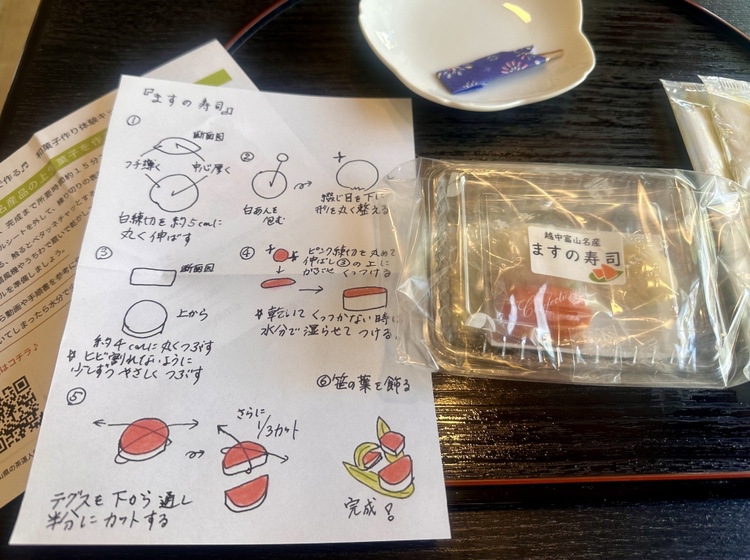 『ますの寿司』
①
断面図
フチ薄く 中心厚く
白練切を約5cmに
丸く伸ばす
②
白あんを
包む
綴じ目を下に
形を丸く整える
③
断面図
上から
約4cmに丸くつぶす
※ヒビ割れないように
少しずつやさしくつぶす
④
ピンク練切を丸めて
伸ばし③の上に
かるくくっつける
※乾いてくっつかない時は
水分で湿らせてつける。
⑤
さらに
1/3カット
テグスを下から通し
半分にカットする
⑥笹の葉を飾る
完成!
越中富山名産
ますの寿司
和菓子作り体験キ
完成まで所要時間約15分
コチラ♪